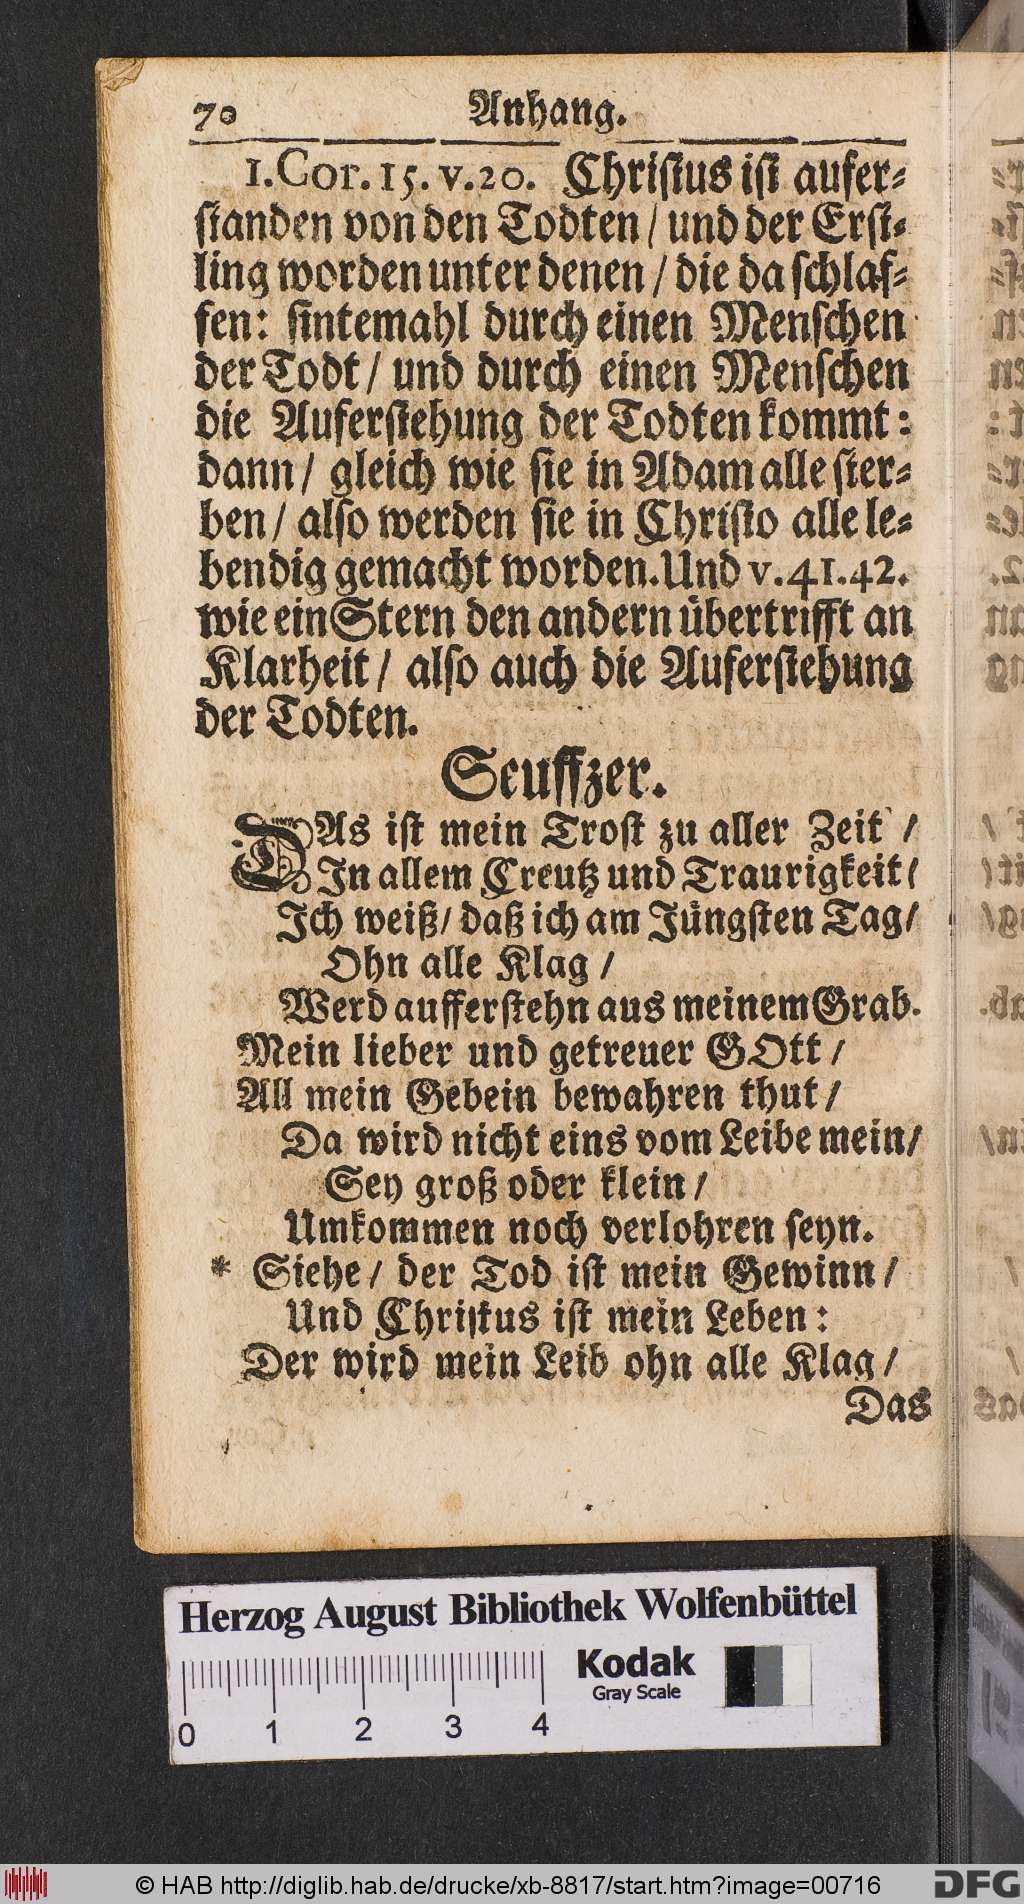 70 Anhang.
1. Cor. 15. v. 20. Christus ist aufer-
standen von den Todten / und der Erst-
ling worden unter denen / die da schlaf-
fen: sintemahl durch einen Menschen
der Todt / und durch einen Menschen
die Auferstehung der Todten kommt:
dann / gleich wie sie in Adam alle ster-
ben / also werden sie in Christo alle le-
bendig gemacht worden. Und v. 41. 42.
wie ein Stern den andern übertrifft an
Klarheit / also auch die Auferstehung
der Todten.
Seuffzer.
DAs ist mein Trost zu aller Zeit /
In allem Creutz und Traurigkeit /
Ich weiß / daß ich am Jüngsten Tag /
Ohn alle Klag /
Werd aufferstehn aus meinem Grab.
Mein lieber und getreuer GOtt /
All mein Gebein bewahren thut /
Da wird nicht eins vom Leibe mein /
Sey groß oder klein /
Umkommen noch verlohren seyn.
* Siehe / der Tod ist mein Gewinn /
Und Christus ist mein Leben:
Der wird mein Leib ohn alle Klag /
Das
Herzog August Bibliothek Wolfenbüttel
Kodak
Gray Scale
0 1 2 3 4
© HAB http://diglib.hab.de/drucke/xb-8817/start.htm?image=00716
DFG